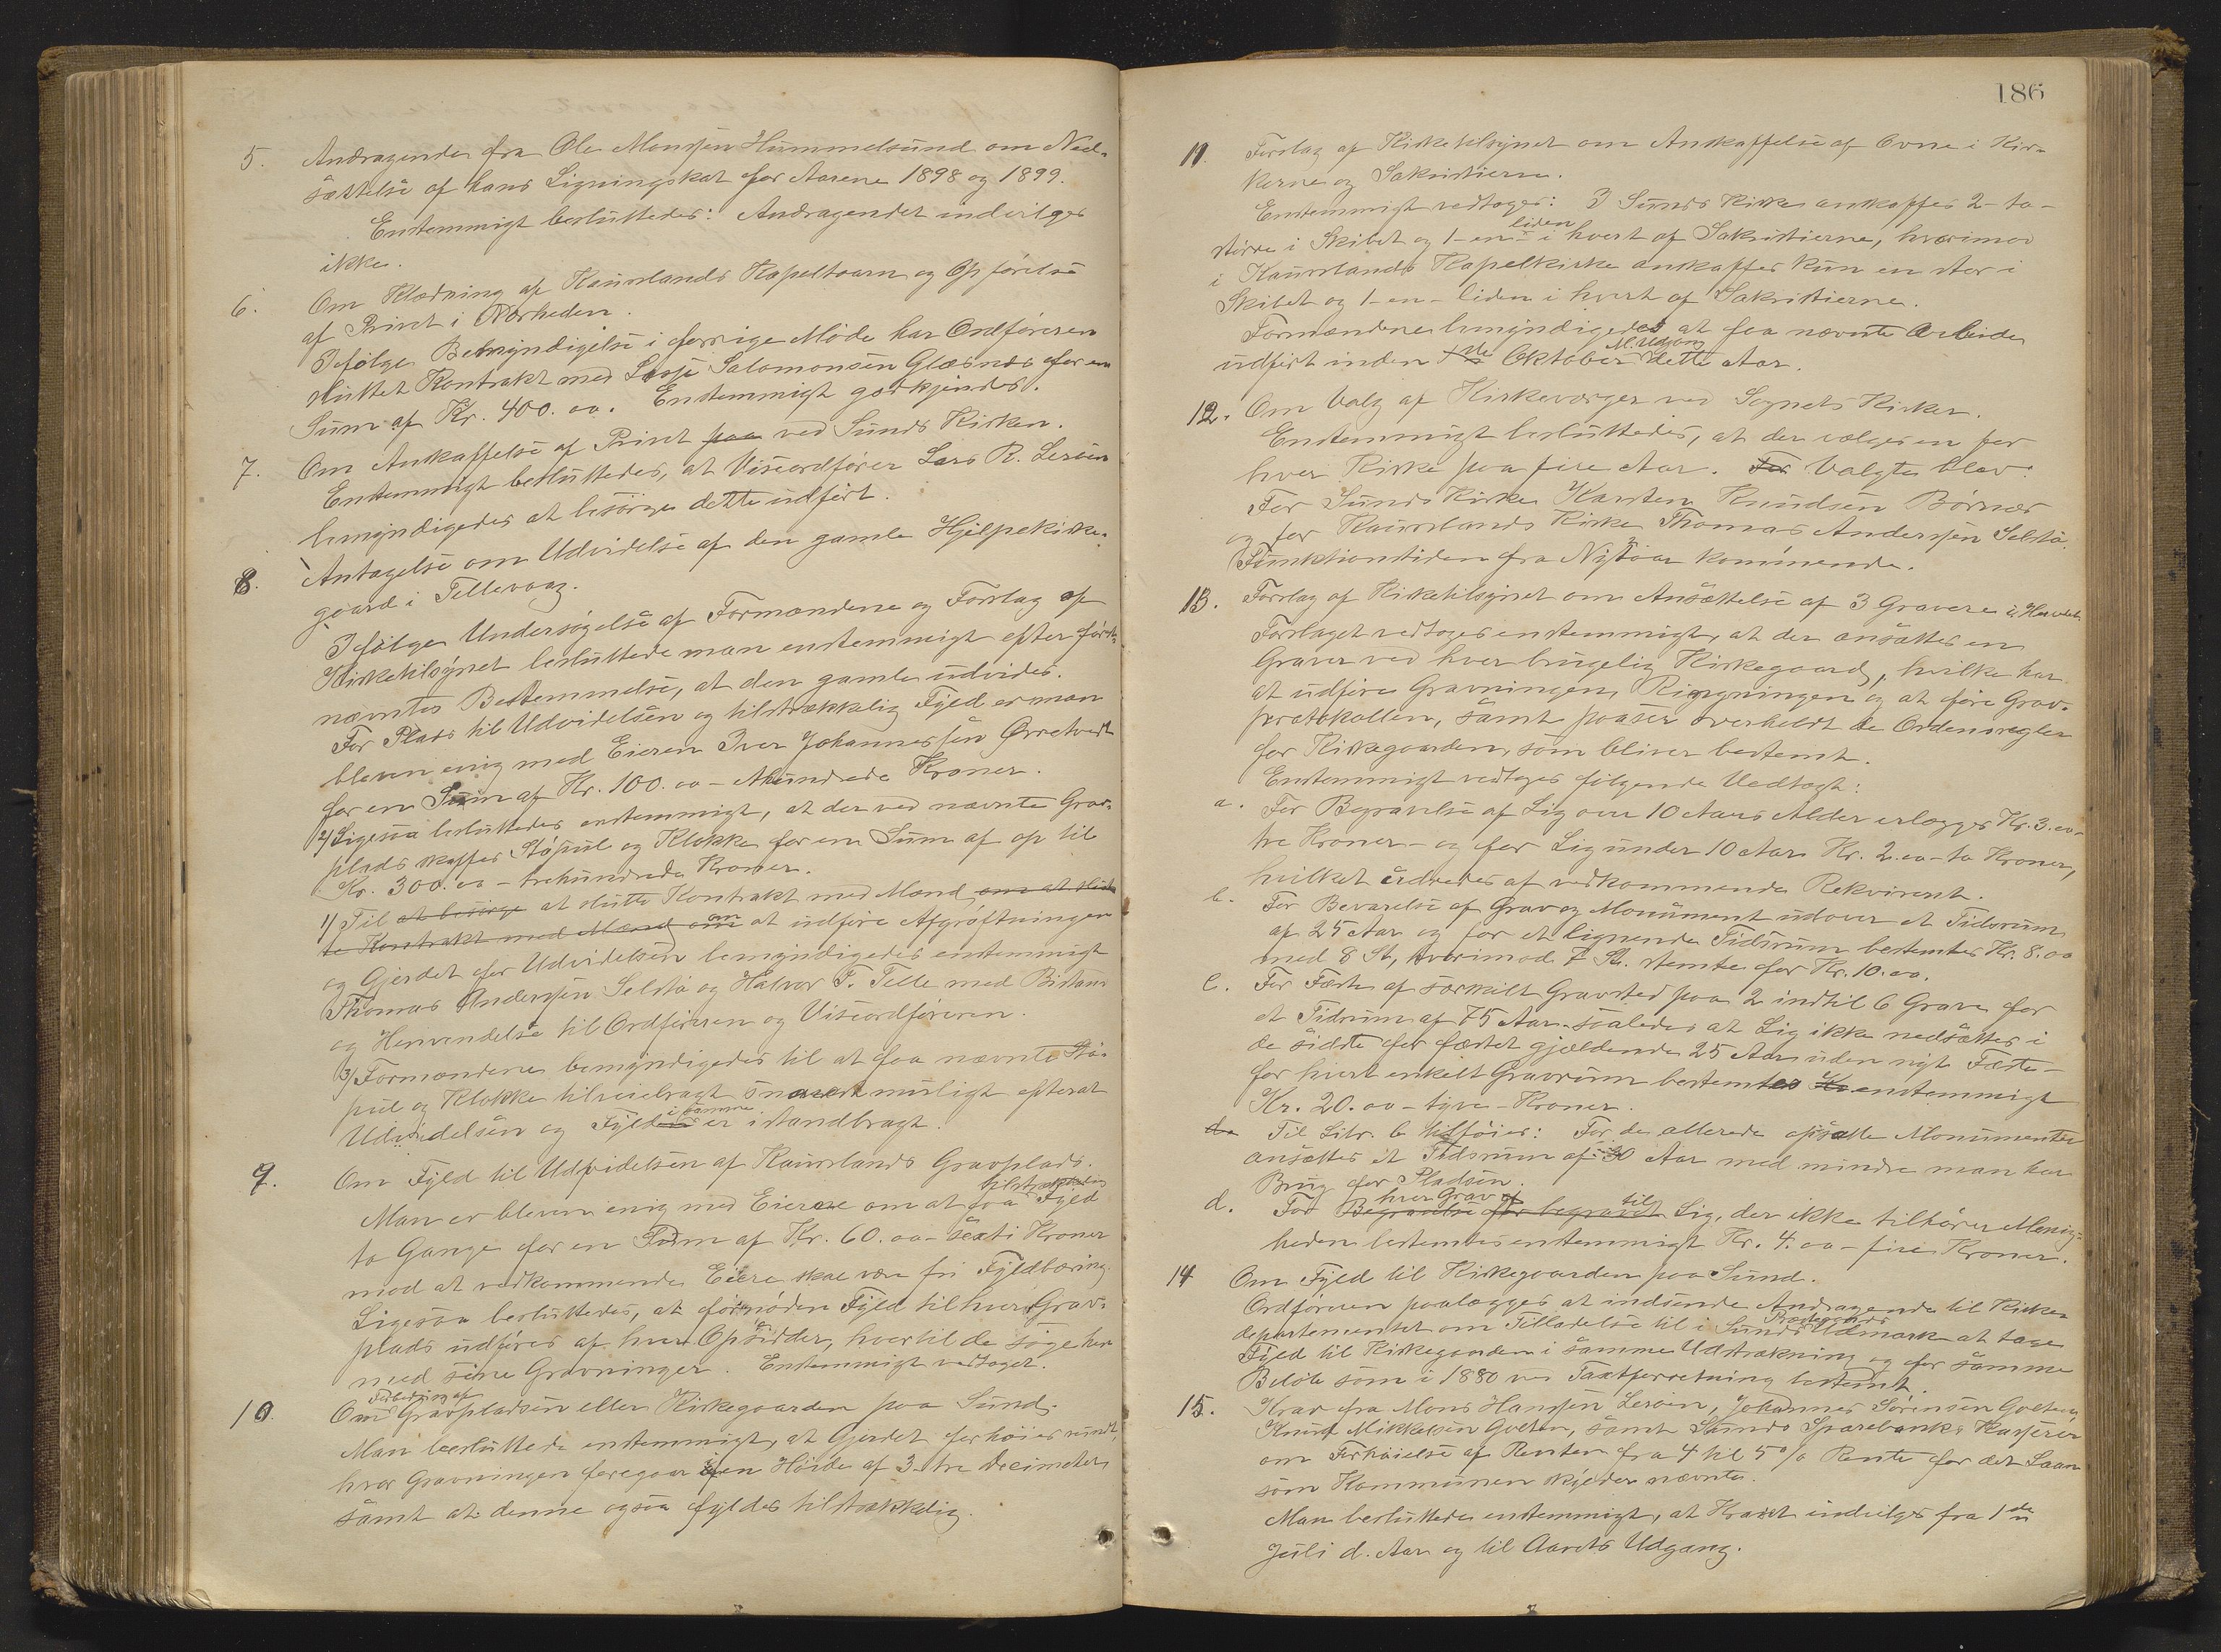 5. Andragende fra Ole Monssen Hummelsund om Ned-
sættelse af hans Ligningskat for Aarene 1898 og 1899.
Enstemmigt besluttedes: Andragendet indvilges
ikke.
6. Om Klædning af Kausslands Kapeltaarn og Opførelse
af Privet i Nærheden.
Ifølge Bemyndigelse i forrige Møde har Ordføreren
sluttet Kontrakt med Lasse Salomonsen Glæsnes for en
Sum af Kr. 400.00. Enstemmigt godkjendes.
7. Om Anskaffelse af Privet paa ved Sunds Kirken.
Enstemmigt besluttedes, at Viseordfører Lars R. Lerøen
bemyndigedes at besørge dette udført.
8. Antagelse om Udvidelse af den gamle Hjelpekirke-
gaard i Tellevaag.
Ifølge Undersøgelse af Formændene og Forslag af
Kirketilsynet besluttede man enstemmigt efter først-
nævntes Bestemmelse, at den gamle udvides.
For Plads til Udvidelsen og tilstrækkelig Fyld er man
bleven enig med Eieren Iver Johannessen Ørretvedt
for en Sum af Kr. 100.00 - Ethundrede Kroner.
2/ Ligesaa besluttedes enstemmigt, at der ved nævnte Grav-
plads skaffes Støpul og Klokke for en Sum af op til
Kr. 300.00 - trehundrede Kroner.
1/ Til at besørge at slutte Kontrakt med Mænd om at slut-
te Kontrakt med Mænd om om at udføre Afgrøftningen
og Gjerdet for Udvidelsen bemyndigedes enstemmigt
Thomas Anderssen Selstø og Halvor T. Telle med Bistand
og Henvendelse til Ordføreren og Viseordføreren.
3/ Formændene bemyndigedes til at faa nævnte Stø-
pul og Klokke tilveiebragt snarest muligt efterat
Udvidelsen og Fylden i samme er istandbragt.
9. Om Fyld til Udvidelsen af Kausslands Gravplads.
Man er bleven enig med Eierene om at faa tilstrækkelig Fyld
to Gange for en Sum af Kr. 60.00 - sexti Kroner
mod at vedkommende Eiere skal være fri Fyldbæring.
Ligesaa besluttedes, at fornøden Fyld til hver Grav-
plads udføres af hver Opsidder, hvortil de søge hen
med sine Gravninger. Enstemmigt vedtaget.
10. Om Forbedring af Gravpladsen eller Kirkegaarden paa Sund.
Man besluttede enstemmigt, at Gjerdet forhøies rundt,
hvor Gravningen foregaar i en Høide af 3-tre Decimeter
samt at denne ogsaa fyldes tilstrækkelig.
186
11. Forslag af Kirketilsynet om Anskaffelse af Ovne i Kir-
kerne og Sakristierne.
Enstemmigt vedtoges: I Sunds Kirke anskaffes 2-to-
større i Skibet og 1-en- liden i hvert af Sakristierne, hvorimod
i Kausslands Kapelkirke anskaffes kun en stor i
Skibet og 1-en- liden i hvert af Sakristierne.
Formændene bemyndigedes at faa nævnte Arbeide
udført inden 1ste Oktober dette Aar.
12. Om Valg af Kirkeværger ved Sognets Kirker.
Enstemmigt besluttedes, at der vælges en for
hver Kirke paa fire Aar. For Valgte blev:
For Sunds Kirke Karsten Knudsen Børnes
og for Kausslands Kirke Thomas Anderssen Selstø.
Funktionstiden fra Nytaar kommende.
13. Forslag af Kirketilsynet om Ansættelse af 3 Gravere i Herredet.
Forslaget vedtoges enstemmigt, at der ansættes en
Graver ved hver brugelig Kirkegaard, hvilke har
at udføre Gravningen, Ringningen og at føre Grav-
protokollen, samt paaser overholdt de Ordensregler
for Kirkegaarden, som bliver bestemt.
Enstemmigt vedtoges følgende Vedtægt:
a. For Begravelse af Lig over 10 Aars Alder erlægges Kr. 3.00-
tre Kroner - og for Lig under 10 Aar Kr. 2.00 - to Kroner,
hvilket udredes af vedkommende Rekvirent.
b. For Bevarelse af Grav og Monument udover et Tidsrum
af 25 Aar og for et lignende Tidsrum bestemtes Kr. 8.00
med 8 St, hvorimod 7 St. stemte for Kr. 10.00.
c. For Fæste af særskilt Gravsted paa 2 indtil 6 Grave for
et Tidsrum af 75 Aar saaledes at Lig ikke nedsættes i
de sidste for fæstet gjældende 25 Aar uden nyt Fæste -
for hvert enkelt Gravrum bestemtes Kr enstemmigt
Kr. 20.00 - tyve - Kroner.
d. Til Litr. b tilføies: For de allerede opsatte Monumenter
ansættes et Tidsrum af 30 Aar med mindre man har
Brug for Pladsen.
d. For Begravelse for begravet hver Grav til Lig, der ikke tilhører Menig-
heden bestemtes enstemmigt Kr. 4.00 - fire Kroner.
14 Om Fyld til Kirkegaarden paa Sund.
Ordføreren paalægges at indsende Andragende til Kirke-
departementet om Tilladelse til i Sunds Præstegaards Udmark at tage
Fyld til Kirkegaarden i samme Udstrækning og for samme
Beløb som i 1880 ved Taxtforretning bestemt.
15. Krav fra Mons Hanssen Lerøen, Johannes Sørensen Golten,
Knut Mikkelsen Golten, samt Sunds Sparebanks Kasserer
om Forhøielse af Renten fra 4 til 5% Rente for det Laan
som Kommunen skylder nævnte.
Man besluttede enstemmigt, at Kravet indvilges fra 1de
Juli d. Aar og til Aarets Udgang.